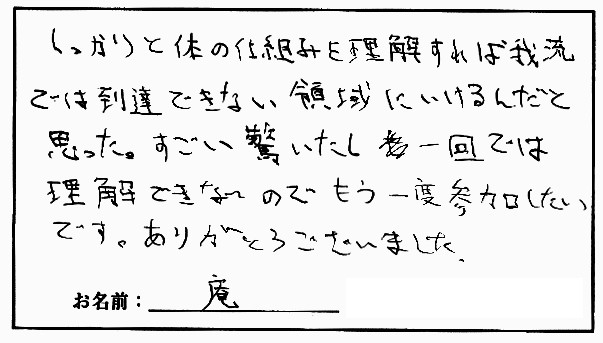 しっかりと体の仕組みを理解すれば我流
では到達できない領域にいけるんだと
思った。すごい驚いたし 一回では
理解できないのでもう一度参加したい
です。ありがとうございました。
お名前：庵